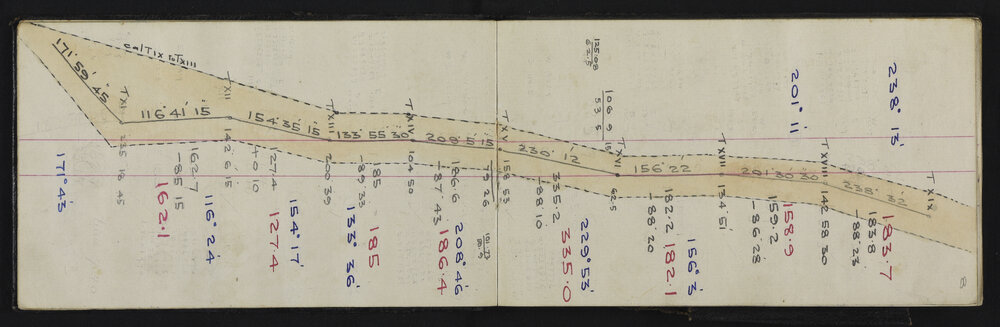 TIX to TXIII
171° 59' 45"
TXI
235 18 45
171° 45'
116° 41' 15"
TXII
142 6 15
162.7
-85 15
162.1
116° 24'
154° 35' 15"
TXIII
200 39
127.4
40 10
127.4
154° 17'
133 55 30
TXIV
104 50
185
-89 33
185
133° 36'
208° 5' 15"
TXV
158 53
79 26
186.6
-87 43
186.4
208° 46'
230° 12'
TXVI
62.5
335.2
-88 10
335.0
229° 53'
125.08
62.5
106 9 15
53 5
156° 22'
TXVII
134 51
182.2
-88 20
182.1
156° 3'
201° 11'
TXVIII
142 58 30
159.2
-86 28
158.9
238° 32'
TXIX
183.8
-88 23
183.7
238° 13'